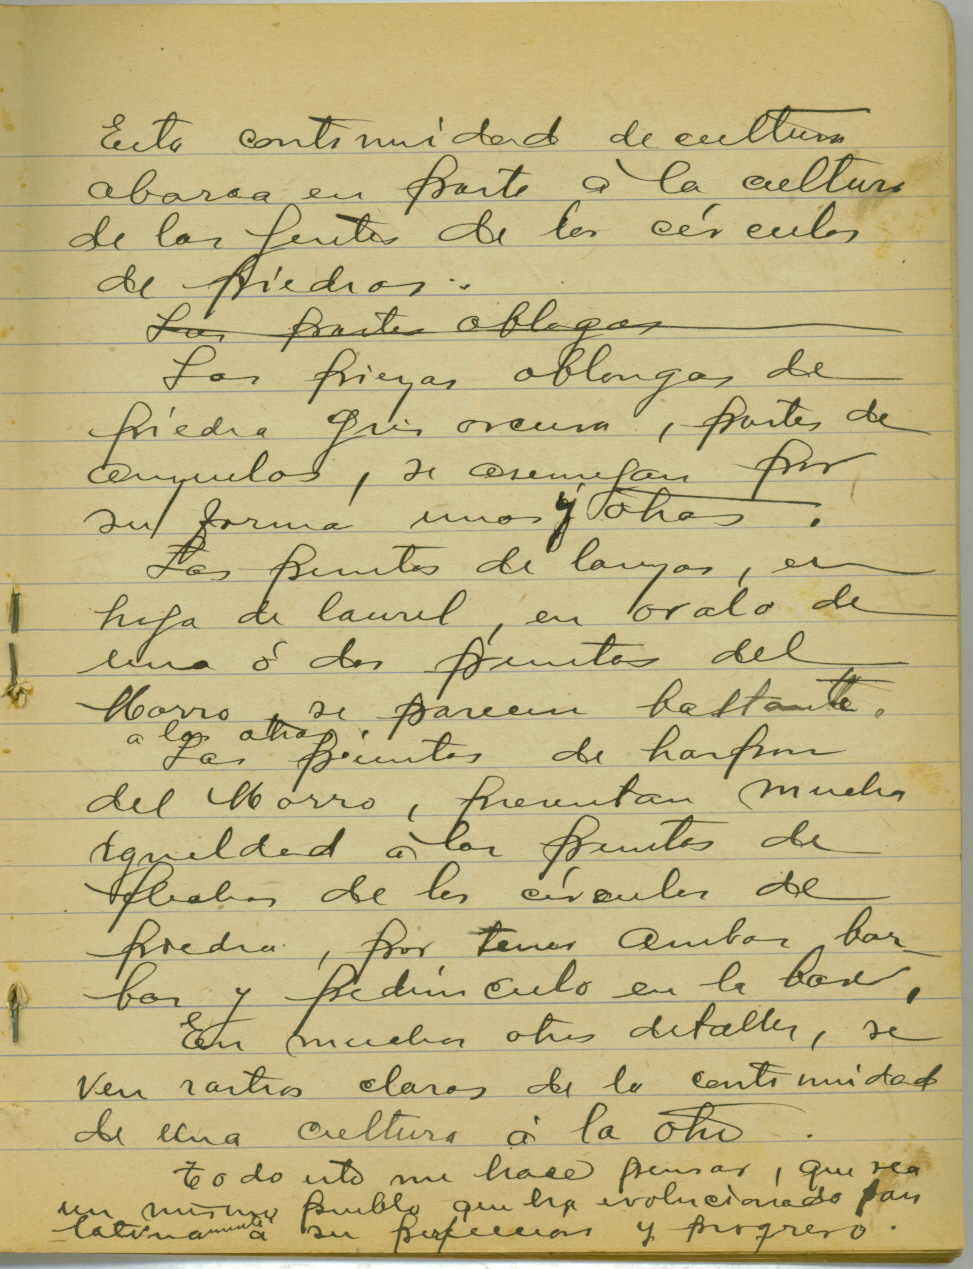 Esta continuidad de cultura
abarca en parte á la cultura
de las gentes de los círculos
de piedras.
Las partes oblogas
Las piezas oblongas de
piedra gris oscura, partes de
anzuelos, se asemejan por
su forma unas y otras.
Las puntas de lanzas, en
hoja de laurel, en ovalo de
una ó dos puntas del
Morro, se parecen bastante
a las otras.
Las puntas de harpon
del Morro, presentan mucha
igualdad á las puntas de
flechas de los círculos de
piedra, por tener ambas bar-
bas y pedúnculo en la base,
En muchos otros detalles, se
ven rastros claros de la continuidad
de una cultura á la otra.
Todo esto me hace pensar, que sea
un mismo pueblo que ha evolucionado pau
latinamente á su perfeccion y progreso.